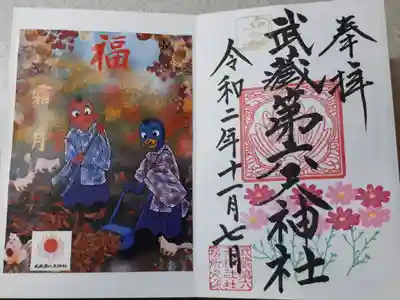 奉拝
武蔵第六天神社
令和二年十一月七日
福
霜月
武蔵第六天神社